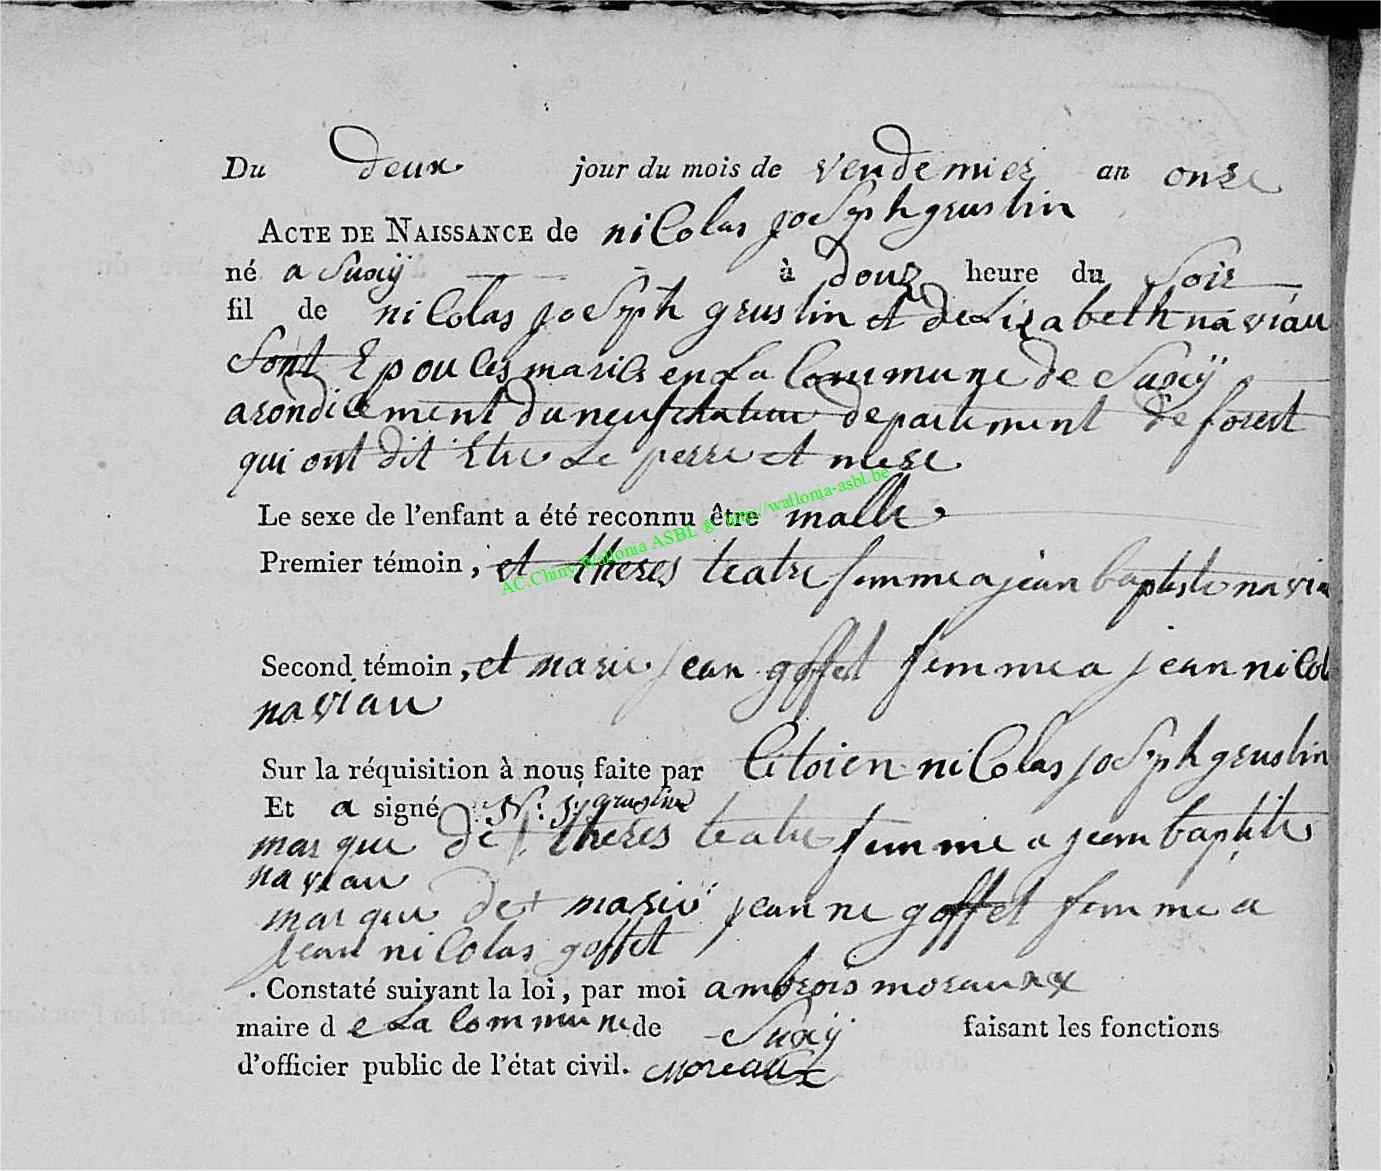 Du deux jour du mois de vendemier an onze
ACTE DE NAISSANCE de nicolas joseph gruslin
né a Suxÿ à douz heure du Soir
fil de nicolas joseph gruslin et de Lizabeth naviau
sont Epouses mariés en La Commune de Suxÿ
arondicement du neufchateau departement de forest
qui ont dit Etre Le perre et mere
Le sexe de l'enfant a été reconnu être malle
AC.Chiny Wallonia ASBL @ http://wallonia-asbl.be
Premier témoin, et theres teatre femme a jean baptiste navia
Second témoin, et marie jean goffet femme a jean nicol
naviau
Sur la réquisition à nous faite par Citoien nicolas joseph gruslin
Et a signé N: j: gruslin
marque de + theres teatre femme a jean baptiste
naviau
marque de + marie jeanne goffet femme a
jean nicolas goffet
. Constaté suivant la loi, par moi ambrois moraux
maire de La commune de Suxÿ faisant les fonctions
d'officier public de l'état civil. Moreaux